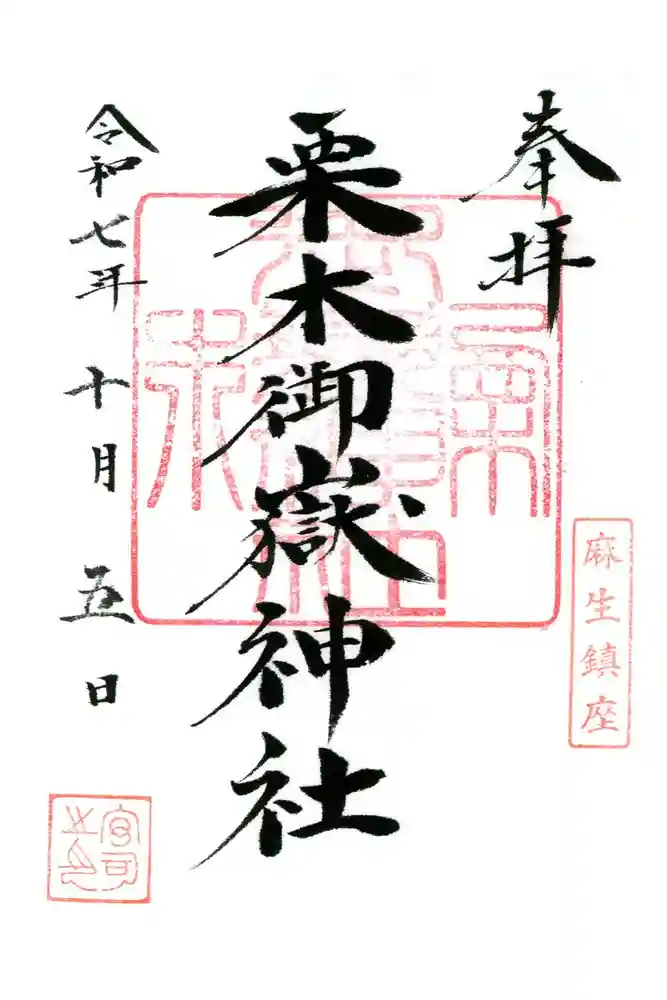 奉拝
麻生鎮座
栗木御嶽神社
令和七年 十月 五日
宮司之印